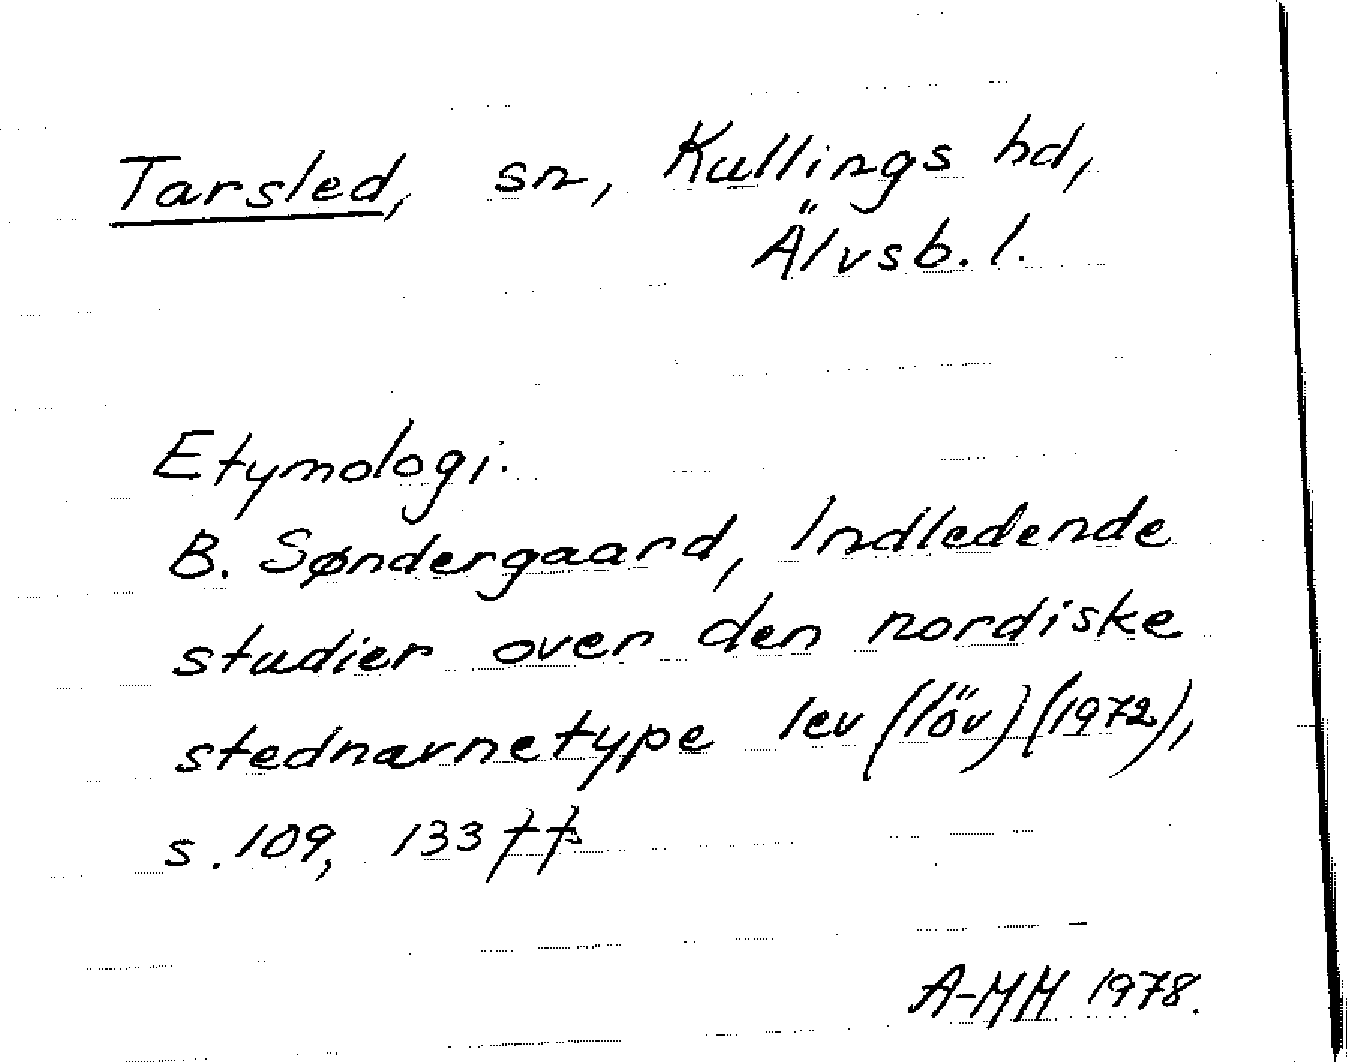 Tarsled, sn, Kullings hd,
Älvsb. l.
Etymologi.
B. Søndergaard, Indledende
studier over den nordiske
stednavnetype lev (löv) (1972),
s. 109, 133 ff
A-MH 1978.